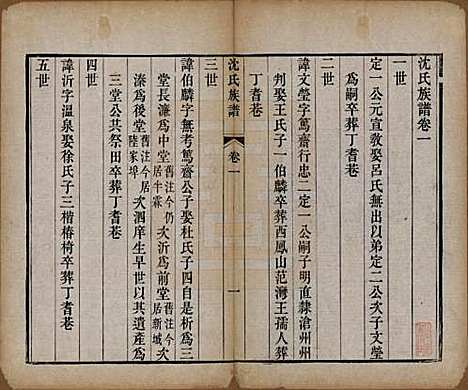 沈氏族譜卷一
一世
定一公元宣教娶呂氏無出以弟定二公次子文瑩
爲嗣卒葬丁耆巷
二世
諱文瑩字篤齋行忠二定一公嗣子明直隸滄州州
判娶王氏子一伯麟卒葬西鳳山范灣王孺人葬
丁耆巷
沈氏族譜 卷一 一
三世
諱伯麟字無考篤齋公子娶杜氏子四自是析爲三
堂長濂爲中堂舊注今仍居牛霖次沂爲前堂舊注今居新城次
溱爲後堂舊注今居陸家埠次泗庠生早世以其遺產爲
三堂公共祭田卒葬丁耆巷
四世
諱沂字溫泉娶徐氏子三楷椿椅卒葬丁耆巷
五世